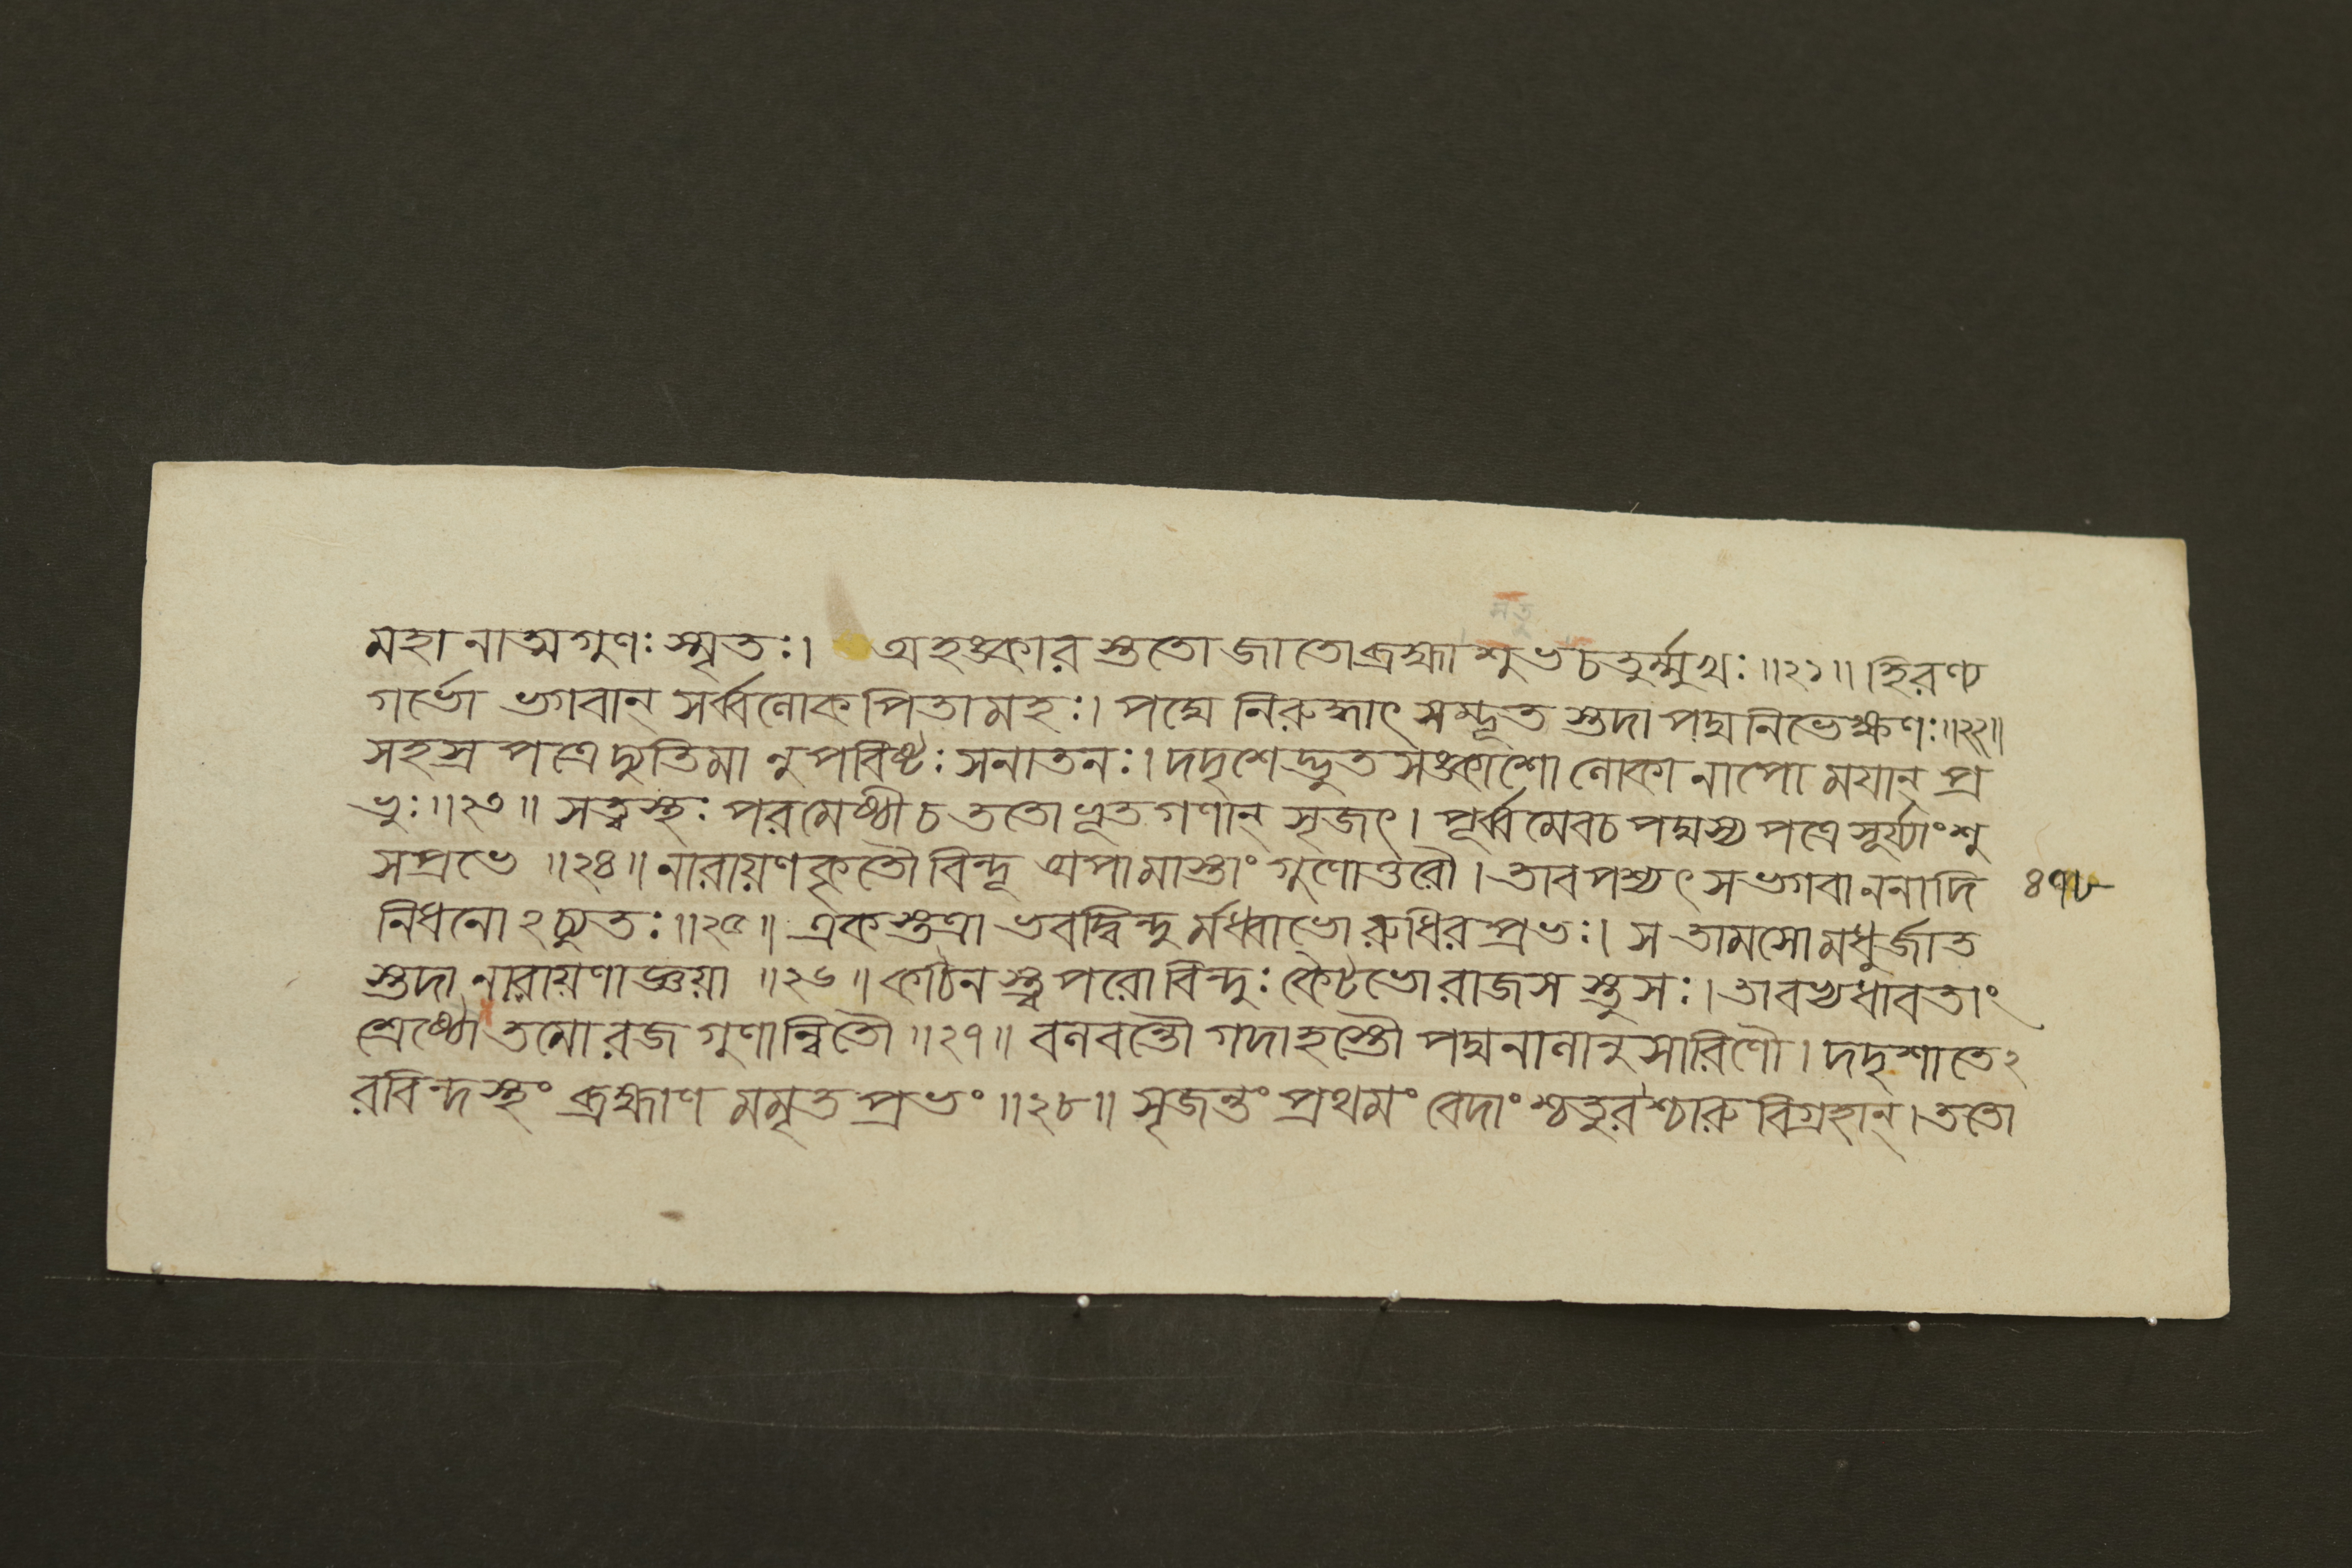 মহানাত্মগুণঃ স্মৃতঃ। অহঙ্কারস্ততো জাতো ব্রহ্মা শুভচতুর্ম্মুখঃ ॥২১॥ হিরণ্য
গর্ভো ভগবান্ সর্ব্বলোকপিতামহঃ। পদ্মে নিরুদ্ধাৎ সম্ভূতস্তদা পদ্মনিভেক্ষণঃ ॥২২॥
সহস্রপত্রে দ্যুতিমানুপবিষ্টঃ সনাতনঃ। দদৃশেদ্ভুতসঙ্কাশো লোকানাপোময়ান্ প্র
ভুঃ ॥২৩॥ সত্ত্বস্থঃ পরমেষ্ঠী চ ততো ভূতগণান্ সৃজৎ। পূর্ব্বমেব চ পদ্মস্য পত্রে সূর্য্যাংশু
সপ্রভে ॥২৪॥ নারায়ণকৃতৌ বিন্দূ অপামাস্তাং গুণোত্তরৌ। তাবপশ্যৎ স ভগবাননাদি ৪৭৮
নিধনোঽচ্যুতঃ ॥২৫॥ একস্তত্রাভবদ্বিন্দুর্মধ্বাভো রুধিরপ্রভঃ। স তামসো মধুর্জাত
স্তদা নারায়ণাজ্ঞয়া ॥২৬॥ কঠিনস্ত্বপরো বিন্দুঃ কৈটভো রাজসস্তু সঃ। তাবভ্যধাবতাং
শ্রেষ্ঠৌ তমোরজগুণান্বিতৌ ॥২৭॥ বলবন্তৌ গদাহস্তৌ পদ্মনালানুসারিণৌ। দদৃশাতেঽ
রবিন্দস্থং ব্রহ্মাণমমৃতপ্রভং ॥২৮॥ সৃজন্তং প্রথমং বেদাংশ্চতুরশ্চারুবিগ্রহান্। ততো